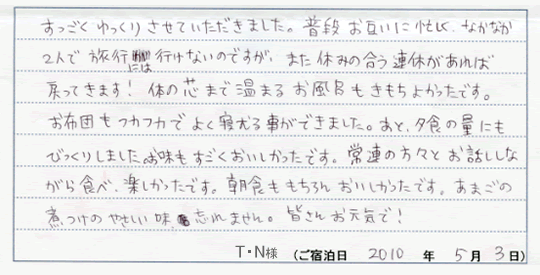 すっごくゆっくりさせていただきました。普段お互いに忙しく、なかなか
2人で旅行には行けないのですが、また休みの合う連休があれば
戻ってきます！体の芯まで温まるお風呂もきもちよかったです。
お布団もフカフカでよく寝れる事ができました。あと、夕食の量にも
びっくりしました。お味もすごくおいしかったです。常連の方々とお話しな
がら食べ、楽しかったです。朝食ももちろんおいしかったです。あまごの
煮つけのやさしい味、忘れません。皆さんお元気で！
T・N様 (ご宿泊日 2010 年 5 月 3 日)